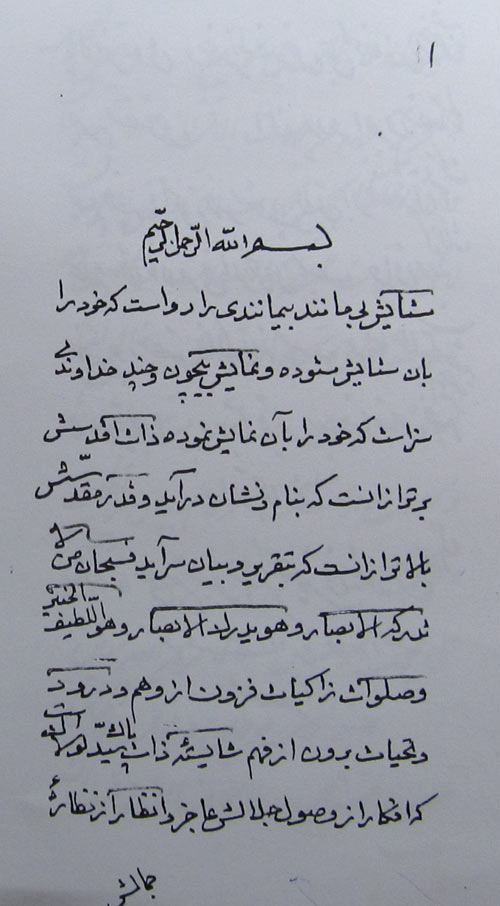 ۱۱
بسم الله الرحمن الرحیم
ستایش بی مانند بیمانندی را رواست که خود را
بان ستایش ستوده و نمایش بیچون و چند خداوندی
سزاست که خود را بآن نمایش نموده ذات اقدسش
برتر از انست که بنام و نشان در آید و قدر مقدسش
بالاتر از انست که بتقریر و بیان سر آید فسبحان من لا
تدرکه الابصار و هو یدرک الابصار و هو اللطیف الخبیر
و صلوات زاکیات فزون از وهم و درود
و تحیات برون از فهم شایسته ذات پاک سید لولاک است
که افکار از وصول جلالش عاجز و انظار از نظارهٔ
جمالش